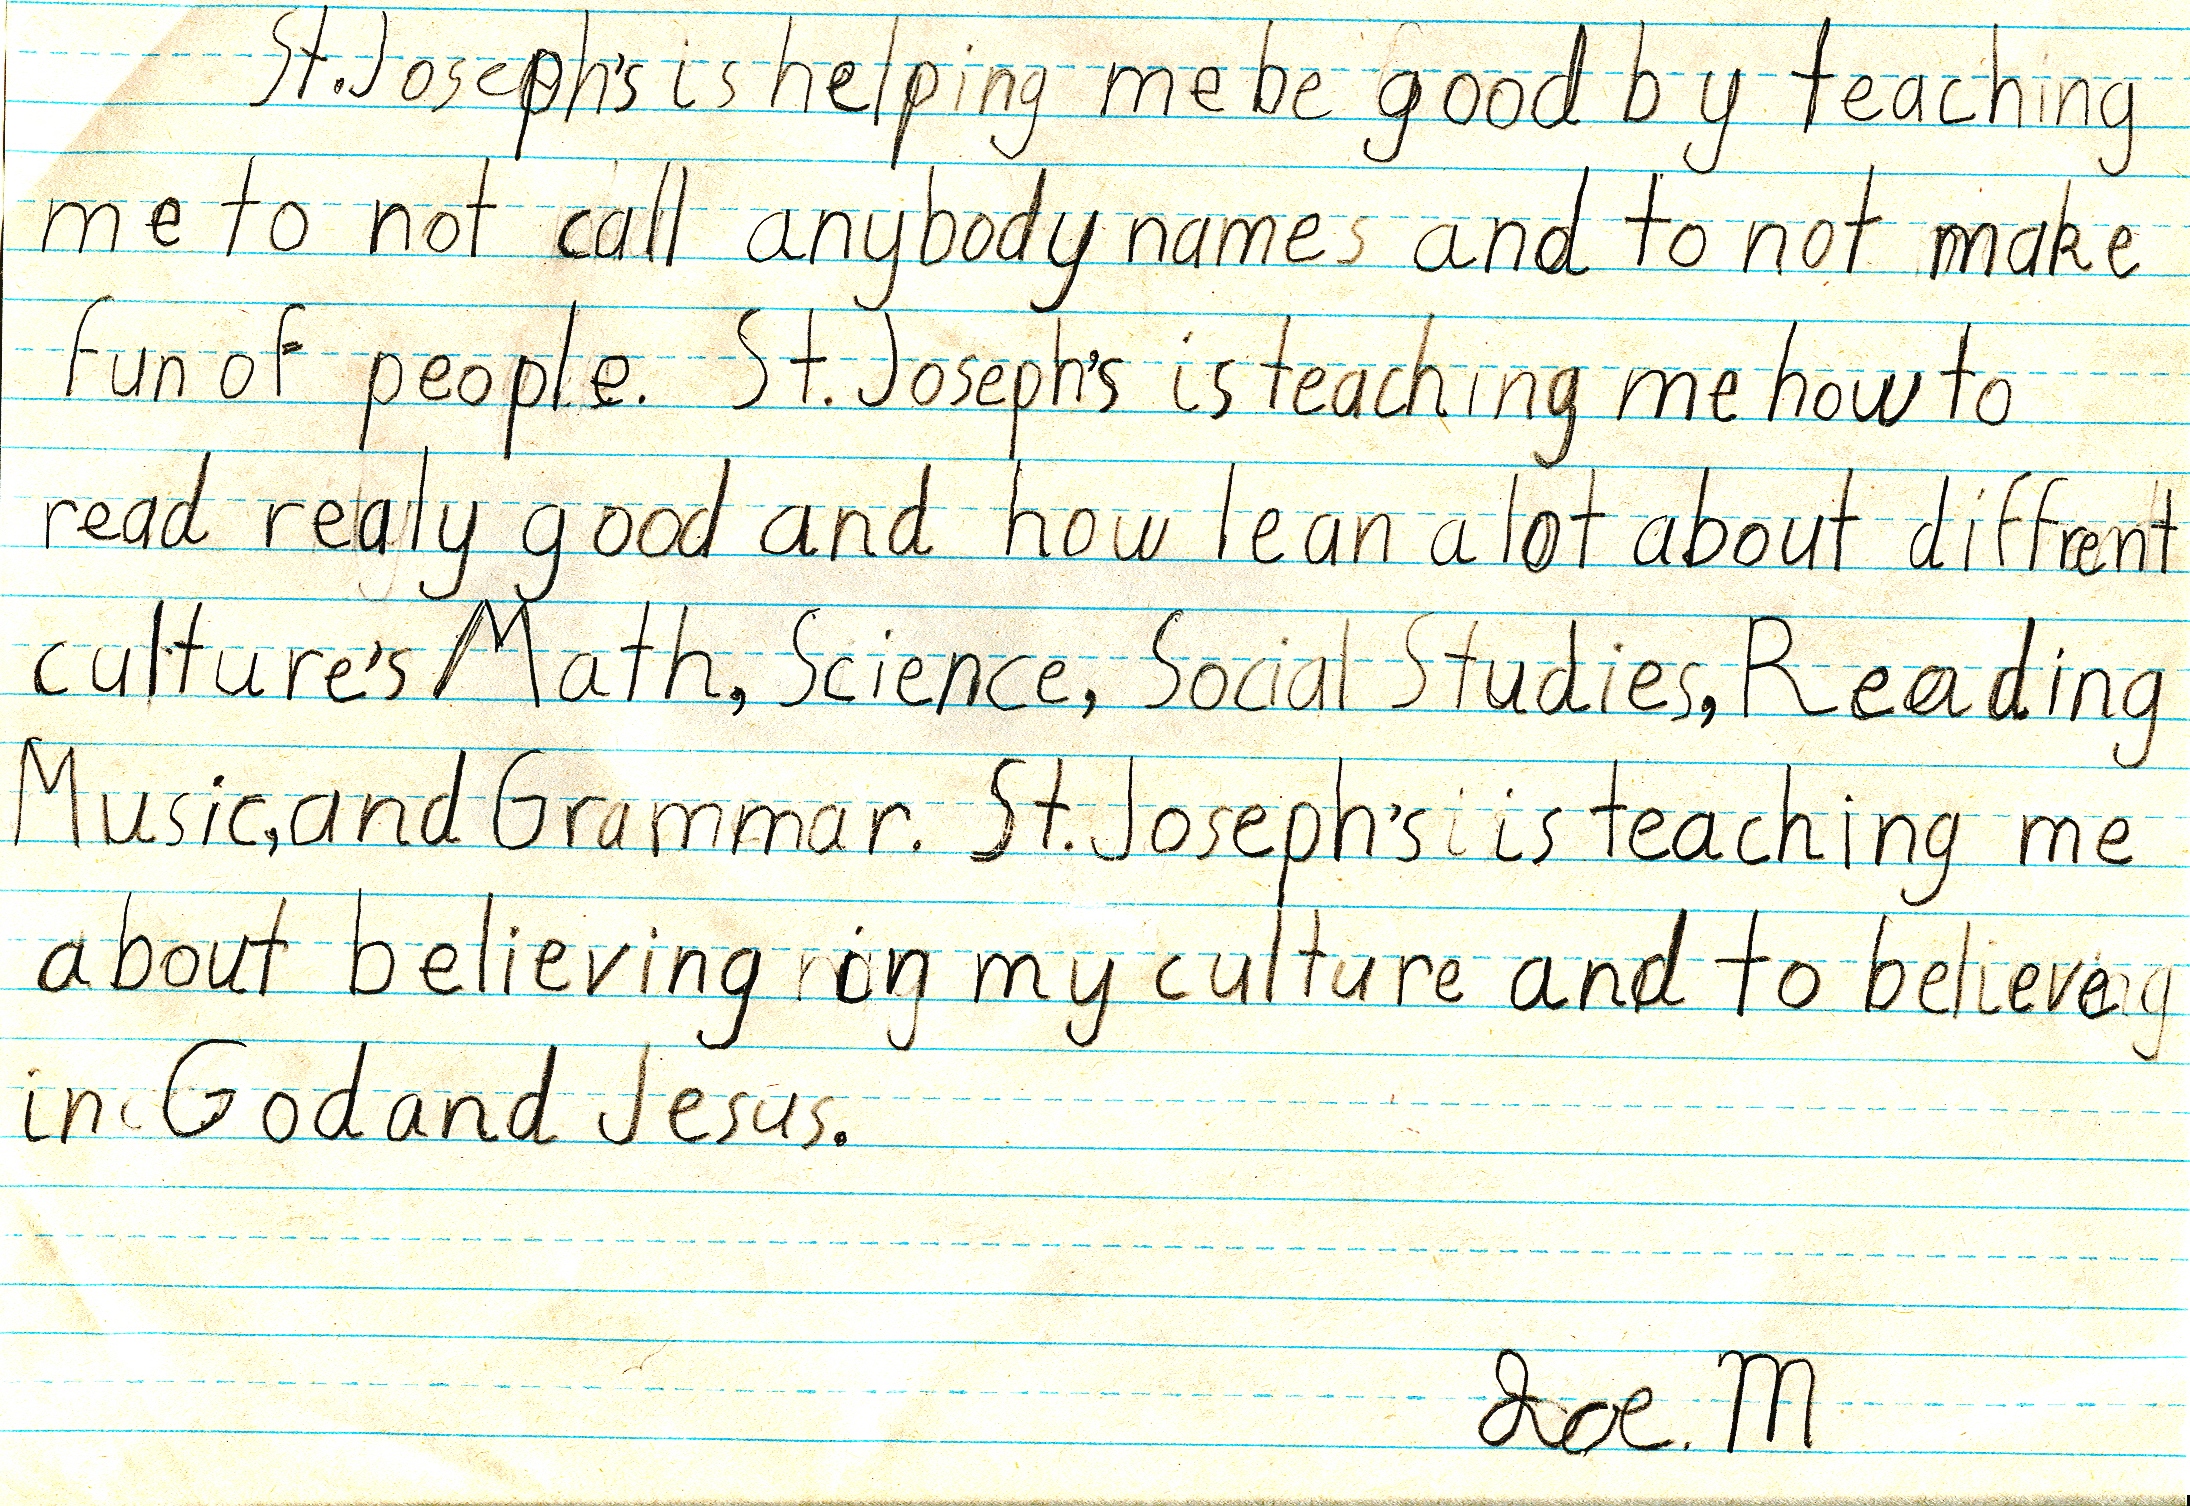 St. Joseph's is helping me be good by teaching
me to not call anybody names and to not make
fun of people. St. Joseph's is teaching me how to
read realy good and how lean a lot about diffrent
culture's Math, Science, Social Studies, Reading
Music, and Grammar. St. Joseph's is teaching me
about believing in my culture and to believe
in God and Jesus.
Zoe. M